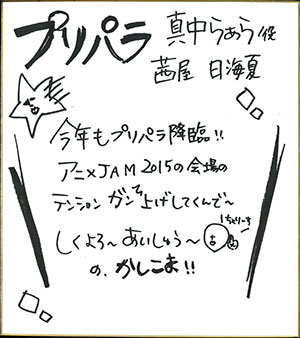 プリパラ
真中らぁら役
茜屋 日海夏
今年もプリパラ降臨!!
アニ×JAM2015の会場の
テンション ガンで上げしてくんで〜
しくよろ〜あいしゅう〜
の、かしこま!!